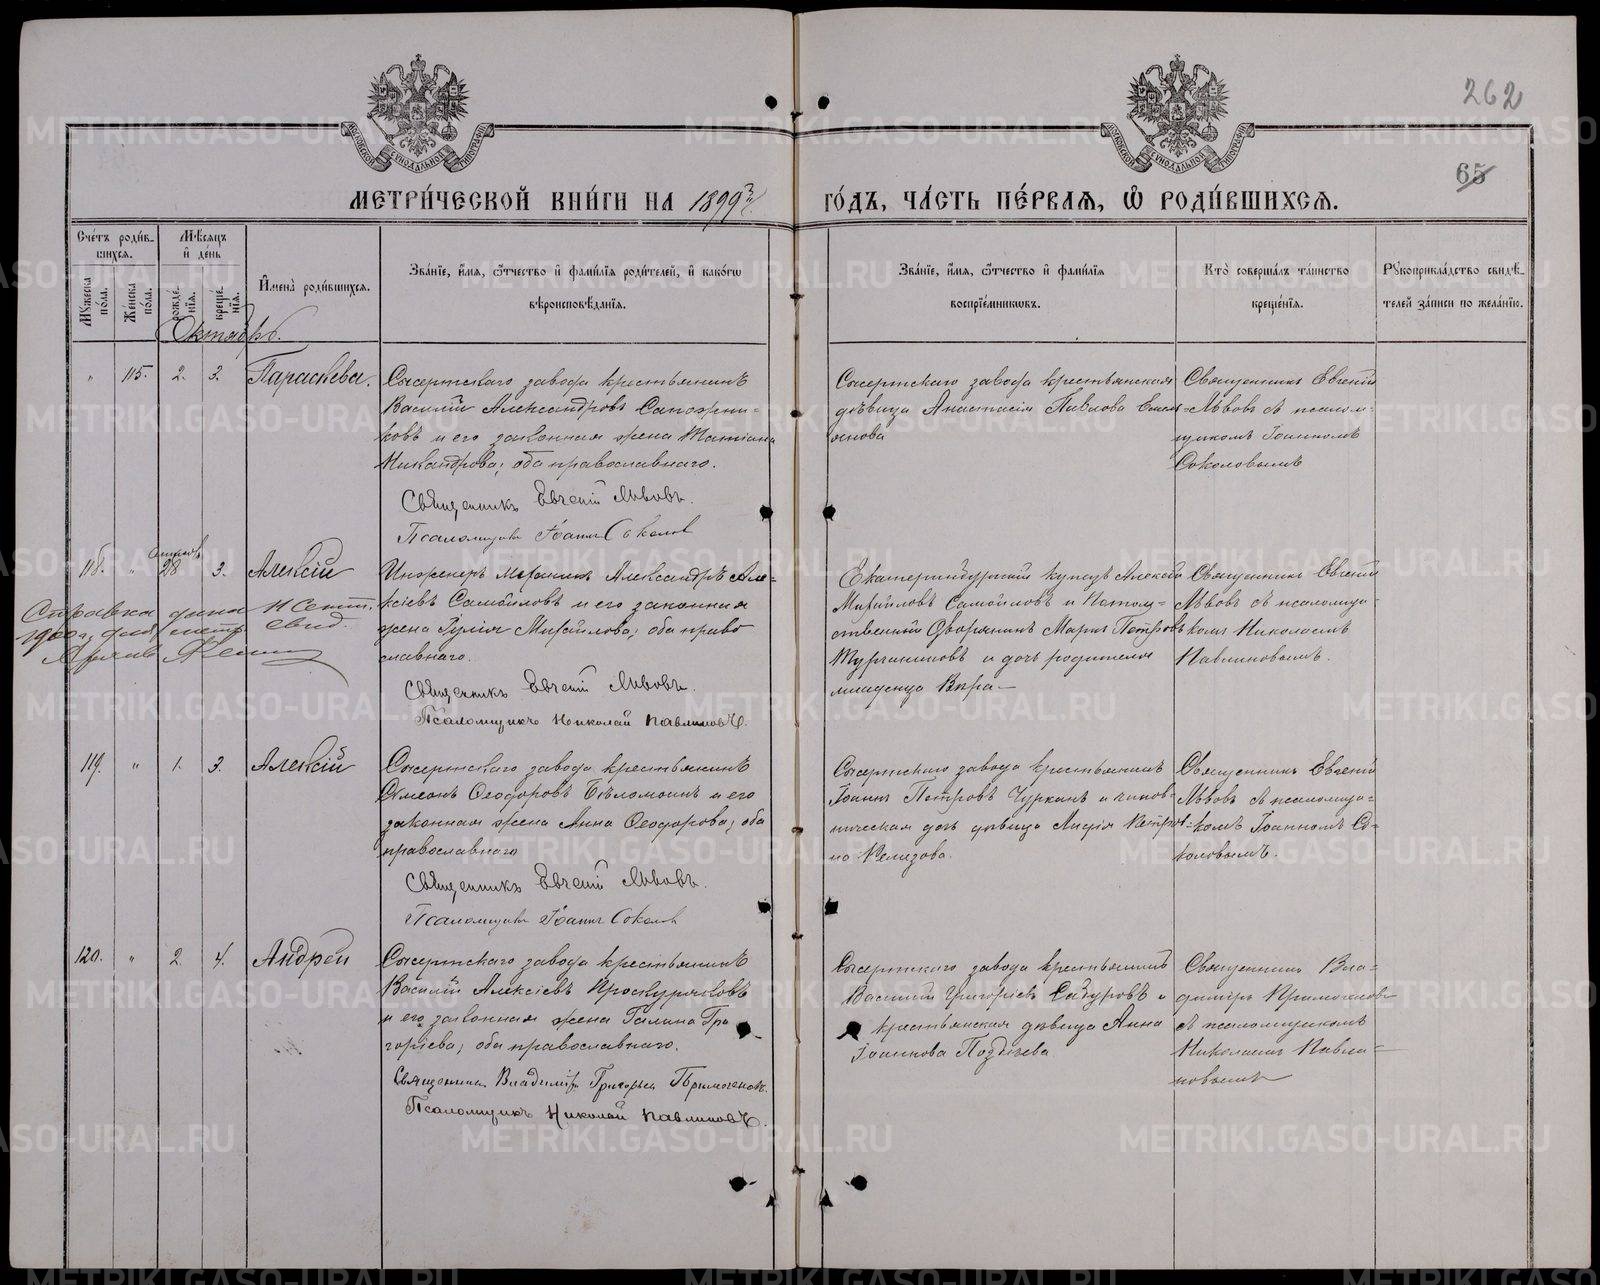 262
65
МОСКОВСКОЙ СѴНОДАЛЬНОЙ ТИПОГРАФІИ
МОСКОВСКОЙ СѴНОДАЛЬНОЙ ТИПОГРАФІИ
МЕТРИ́ЧЕСКОЙ КНИ́ГИ НА 1899й ГО́ДЪ, ЧА́СТЬ ПЕ́РВАЯ, Ѡ РОДИ́ВШИХСЯ.
Сче́тъ роди́в-
шихся.
Мѣ́сяцъ
и де́нь
Мꙋжеска
по́ла.
Же́нска
по́ла.
рожде́-
нїя.
креще́-
нїя.
И҆мена̀ роди́вшихся.
Зва́нїе, и҆́мя, ѻ҆́тчество и҆ фами́лїя роди́телей, и҆ како́гѡ
вѣроисповѣ́данїя.
Зва́нїе, и҆́мя, ѻ҆́тчество и҆ фами́лїя
воспрїе́мниковъ.
Кто̀ соверша́лъ та́инство
креще́нїя.
Рꙋкоприкла́дство свидѣ́-
телей за́писи по жела́нїю.
Октябрь.
" 115. 2. 3. Параскева.
Сысертскаго завода крестьянинъ
Василій Александровъ Сапожни-
ковъ и его законная жена Татіана
Никандрова; оба православнаго.
Священникъ Евгеній Львовъ.
Псаломщикъ Іоаннъ Соколовъ
Сысертскаго завода крестьянская
дѣвица Анастасія Павлова Емель-
янова
Священникъ Евгеній
Львовъ съ псалом-
щикомъ Іоанномъ
Соколовымъ
118. " 28 3. Алексій
Инженеръ Механикъ Александръ Але-
ксіевъ Самойловъ и его законная
жена Юлія Михайлова; оба право
славнаго.
Священникъ Евгеній Львовъ.
Псаломщикъ Николай Павлиновъ.
Справка дана 11 Сент.
1900 г.
свид.
Екатеринбургскій купецъ Алексѣй
Михайловъ Самойловъ и Потом-
ственный Дворянинъ Маркъ Петровъ
Турчаниновъ и дочь родителя
младенца Вѣра
Священникъ Евгеній
Львовъ съ псаломщи-
комъ Николаемъ
Павлиновымъ.
119. " 1. 3. Алексій
Сысертскаго завода крестьянинъ
Симеонъ Ѳеодоровъ Бѣломоинъ и его
законная жена Анна Ѳеодорова; оба
православнаго
Священникъ Евгеній Львовъ.
Псаломщикъ Іоаннъ Соколовъ
Сысертскаго завода крестьянинъ
Іоаннъ Петровъ Чуркинъ и чинов-
ническая дочь дѣвица Лидія Петро-
ва
Священникъ Евгеній
Львовъ съ псаломщи-
комъ Іоанномъ Со-
коловымъ.
120. " 2. 4. Андрей
Сысертскаго завода крестьянинъ
Василій Алексіевъ Проскуряковъ
и его законная жена Галина Гри
горіева; оба православнаго.
Священникъ Владиміръ Григорьев Примоченовъ.
Псаломщикъ Николай Павлиновъ.
Сысертскаго завода крестьянинъ
Василій Григоріевъ и
крестьянская дѣвица Анна
Іоаннова Поздѣева
Священникъ Вла-
диміръ Примоченовъ
съ псаломщикомъ
Николаемъ Павли-
новымъ